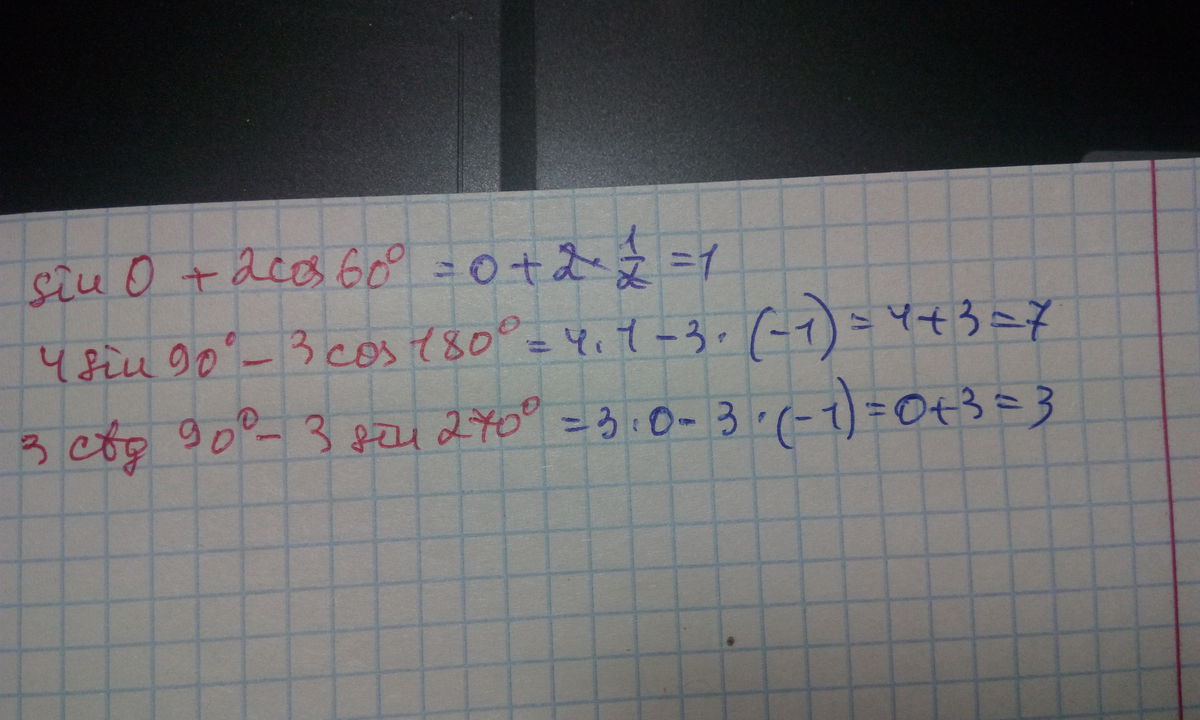 sin 0 + 2cos 60° = 0 + 2 · 1/2 = 1
4 sin 90° - 3 cos 180° = 4 · 1 - 3 · (-1) = 4 + 3 = 7
3 ctg 90° - 3 sin 270° = 3 · 0 - 3 · (-1) = 0 + 3 = 3